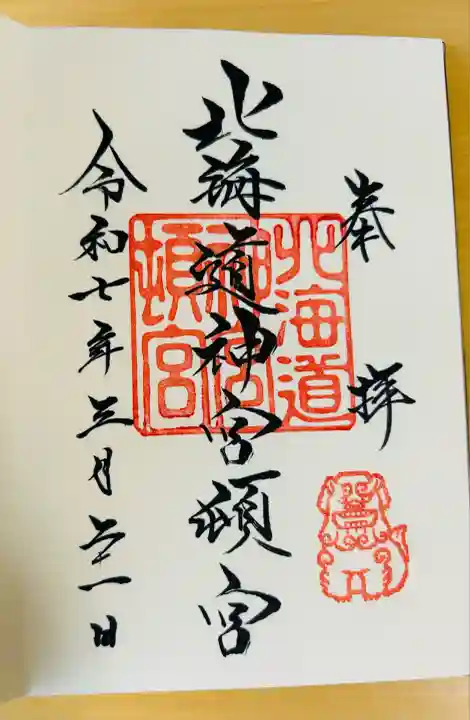 奉拝
北海道神宮頓宮
北海道
神宮
頓宮
令和七年三月二十一日